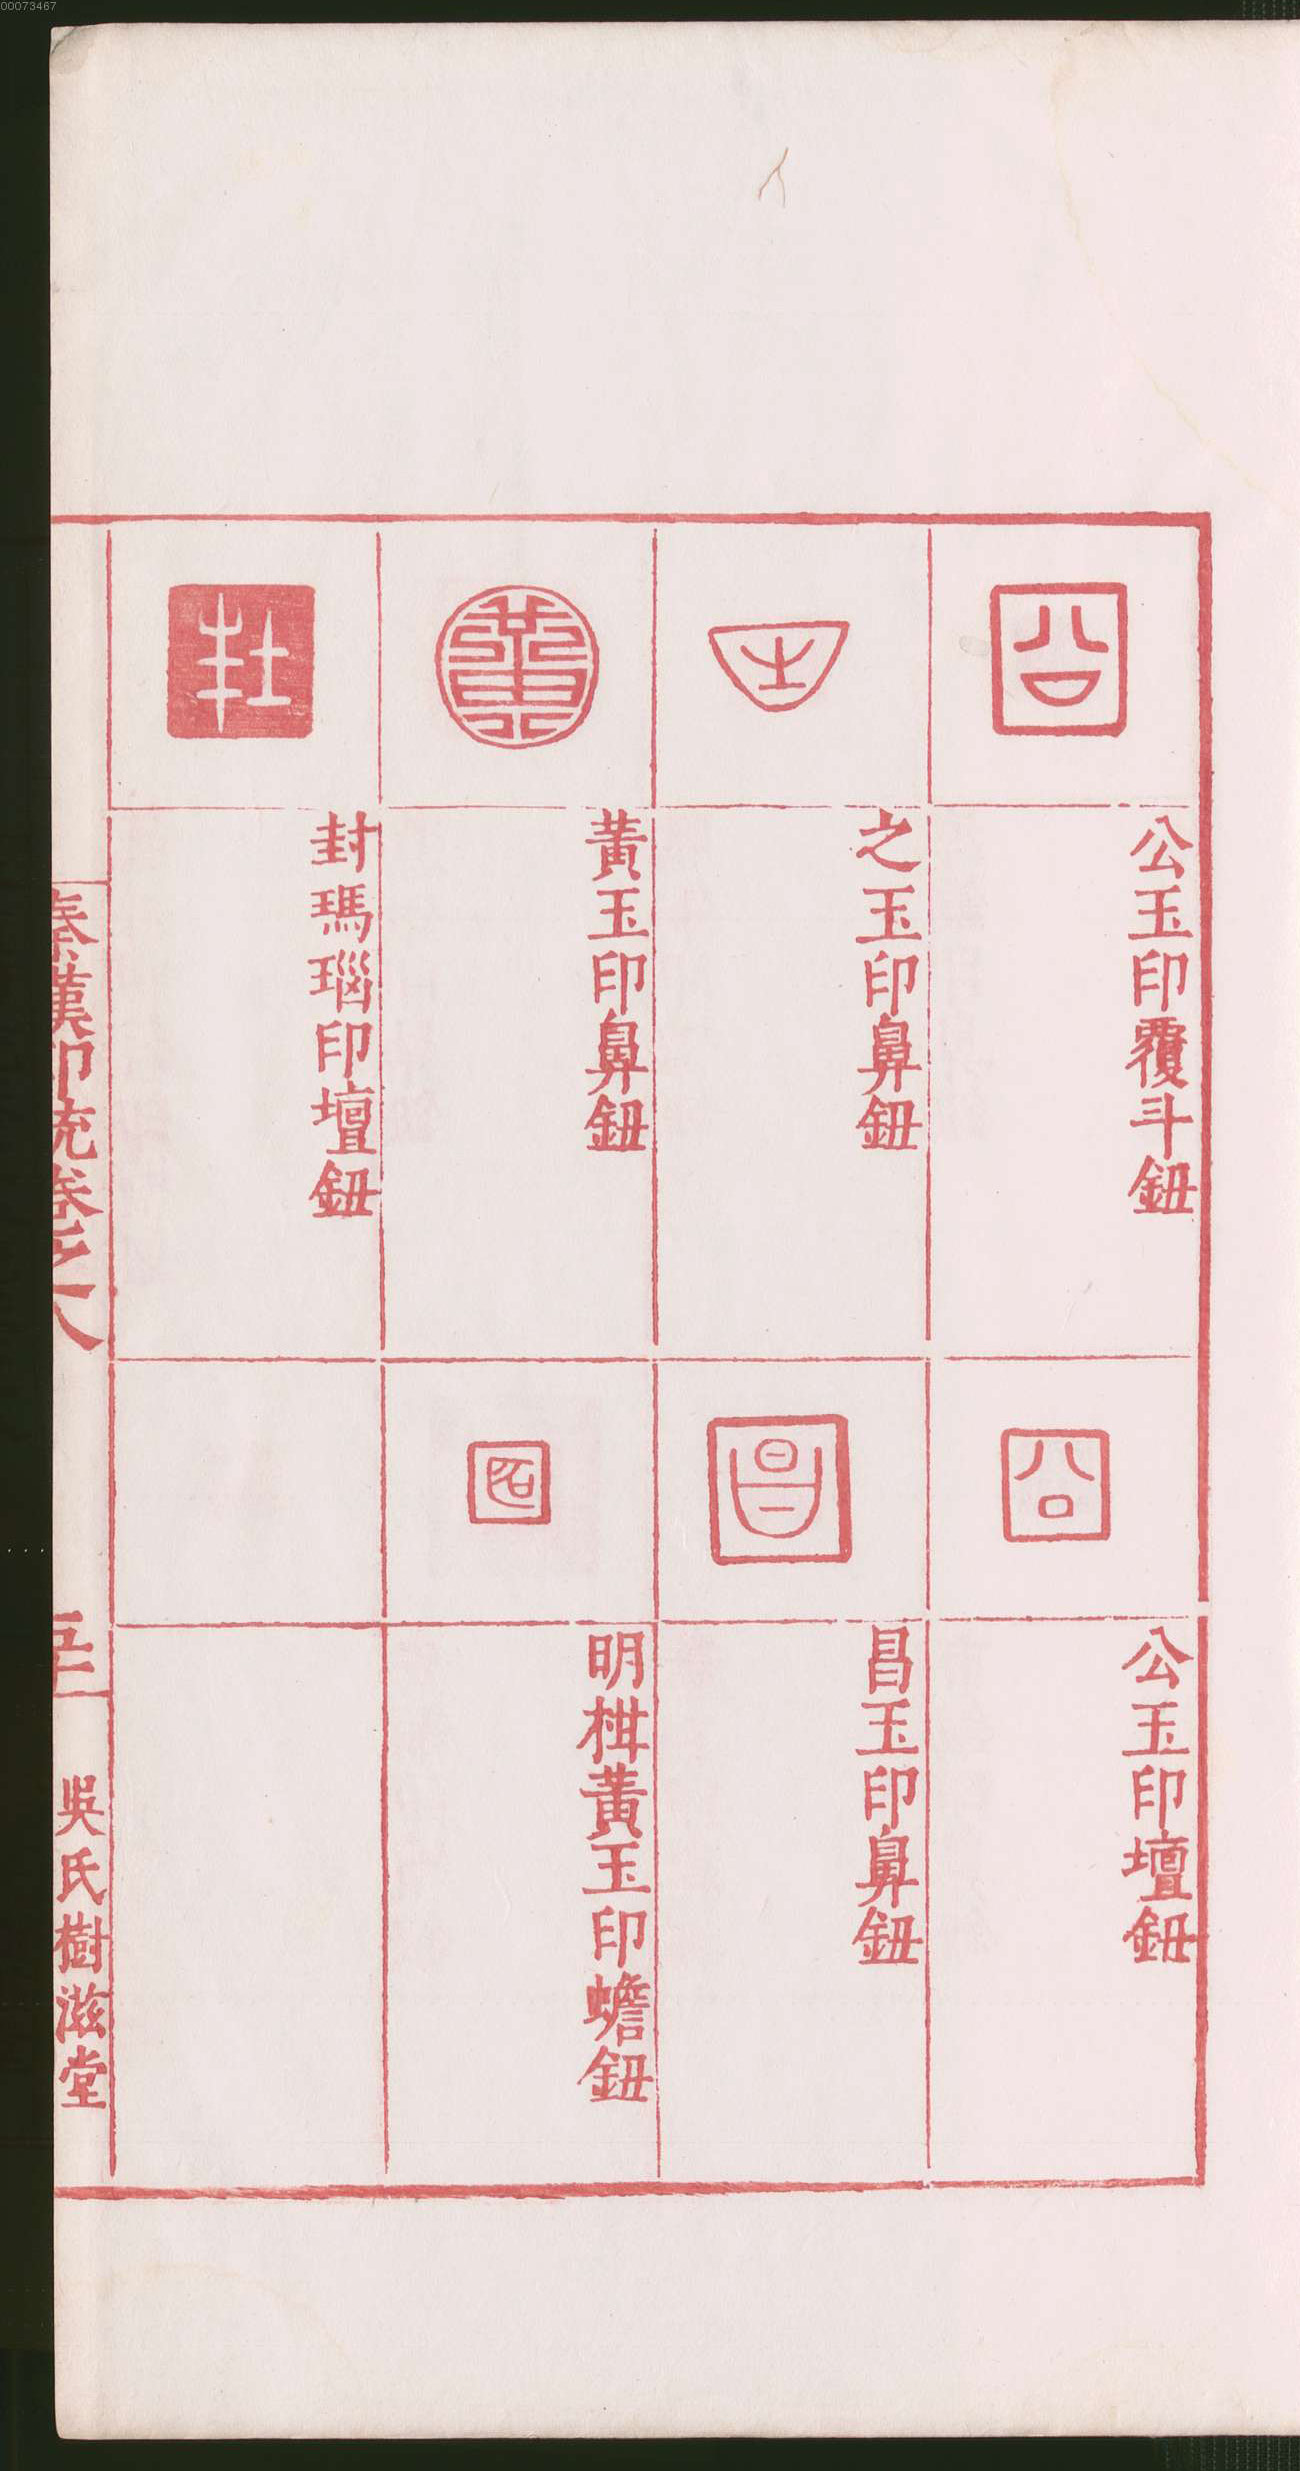 00073467
公
公玉印覆斗鈕
公
公玉印壇鈕
之
之玉印鼻鈕
昌
昌玉印鼻鈕
黃玉印鼻鈕
明柑黃玉印蟾鈕
封
封瑪瑙印壇鈕
秦漢印統卷之八
吳氏樹滋堂